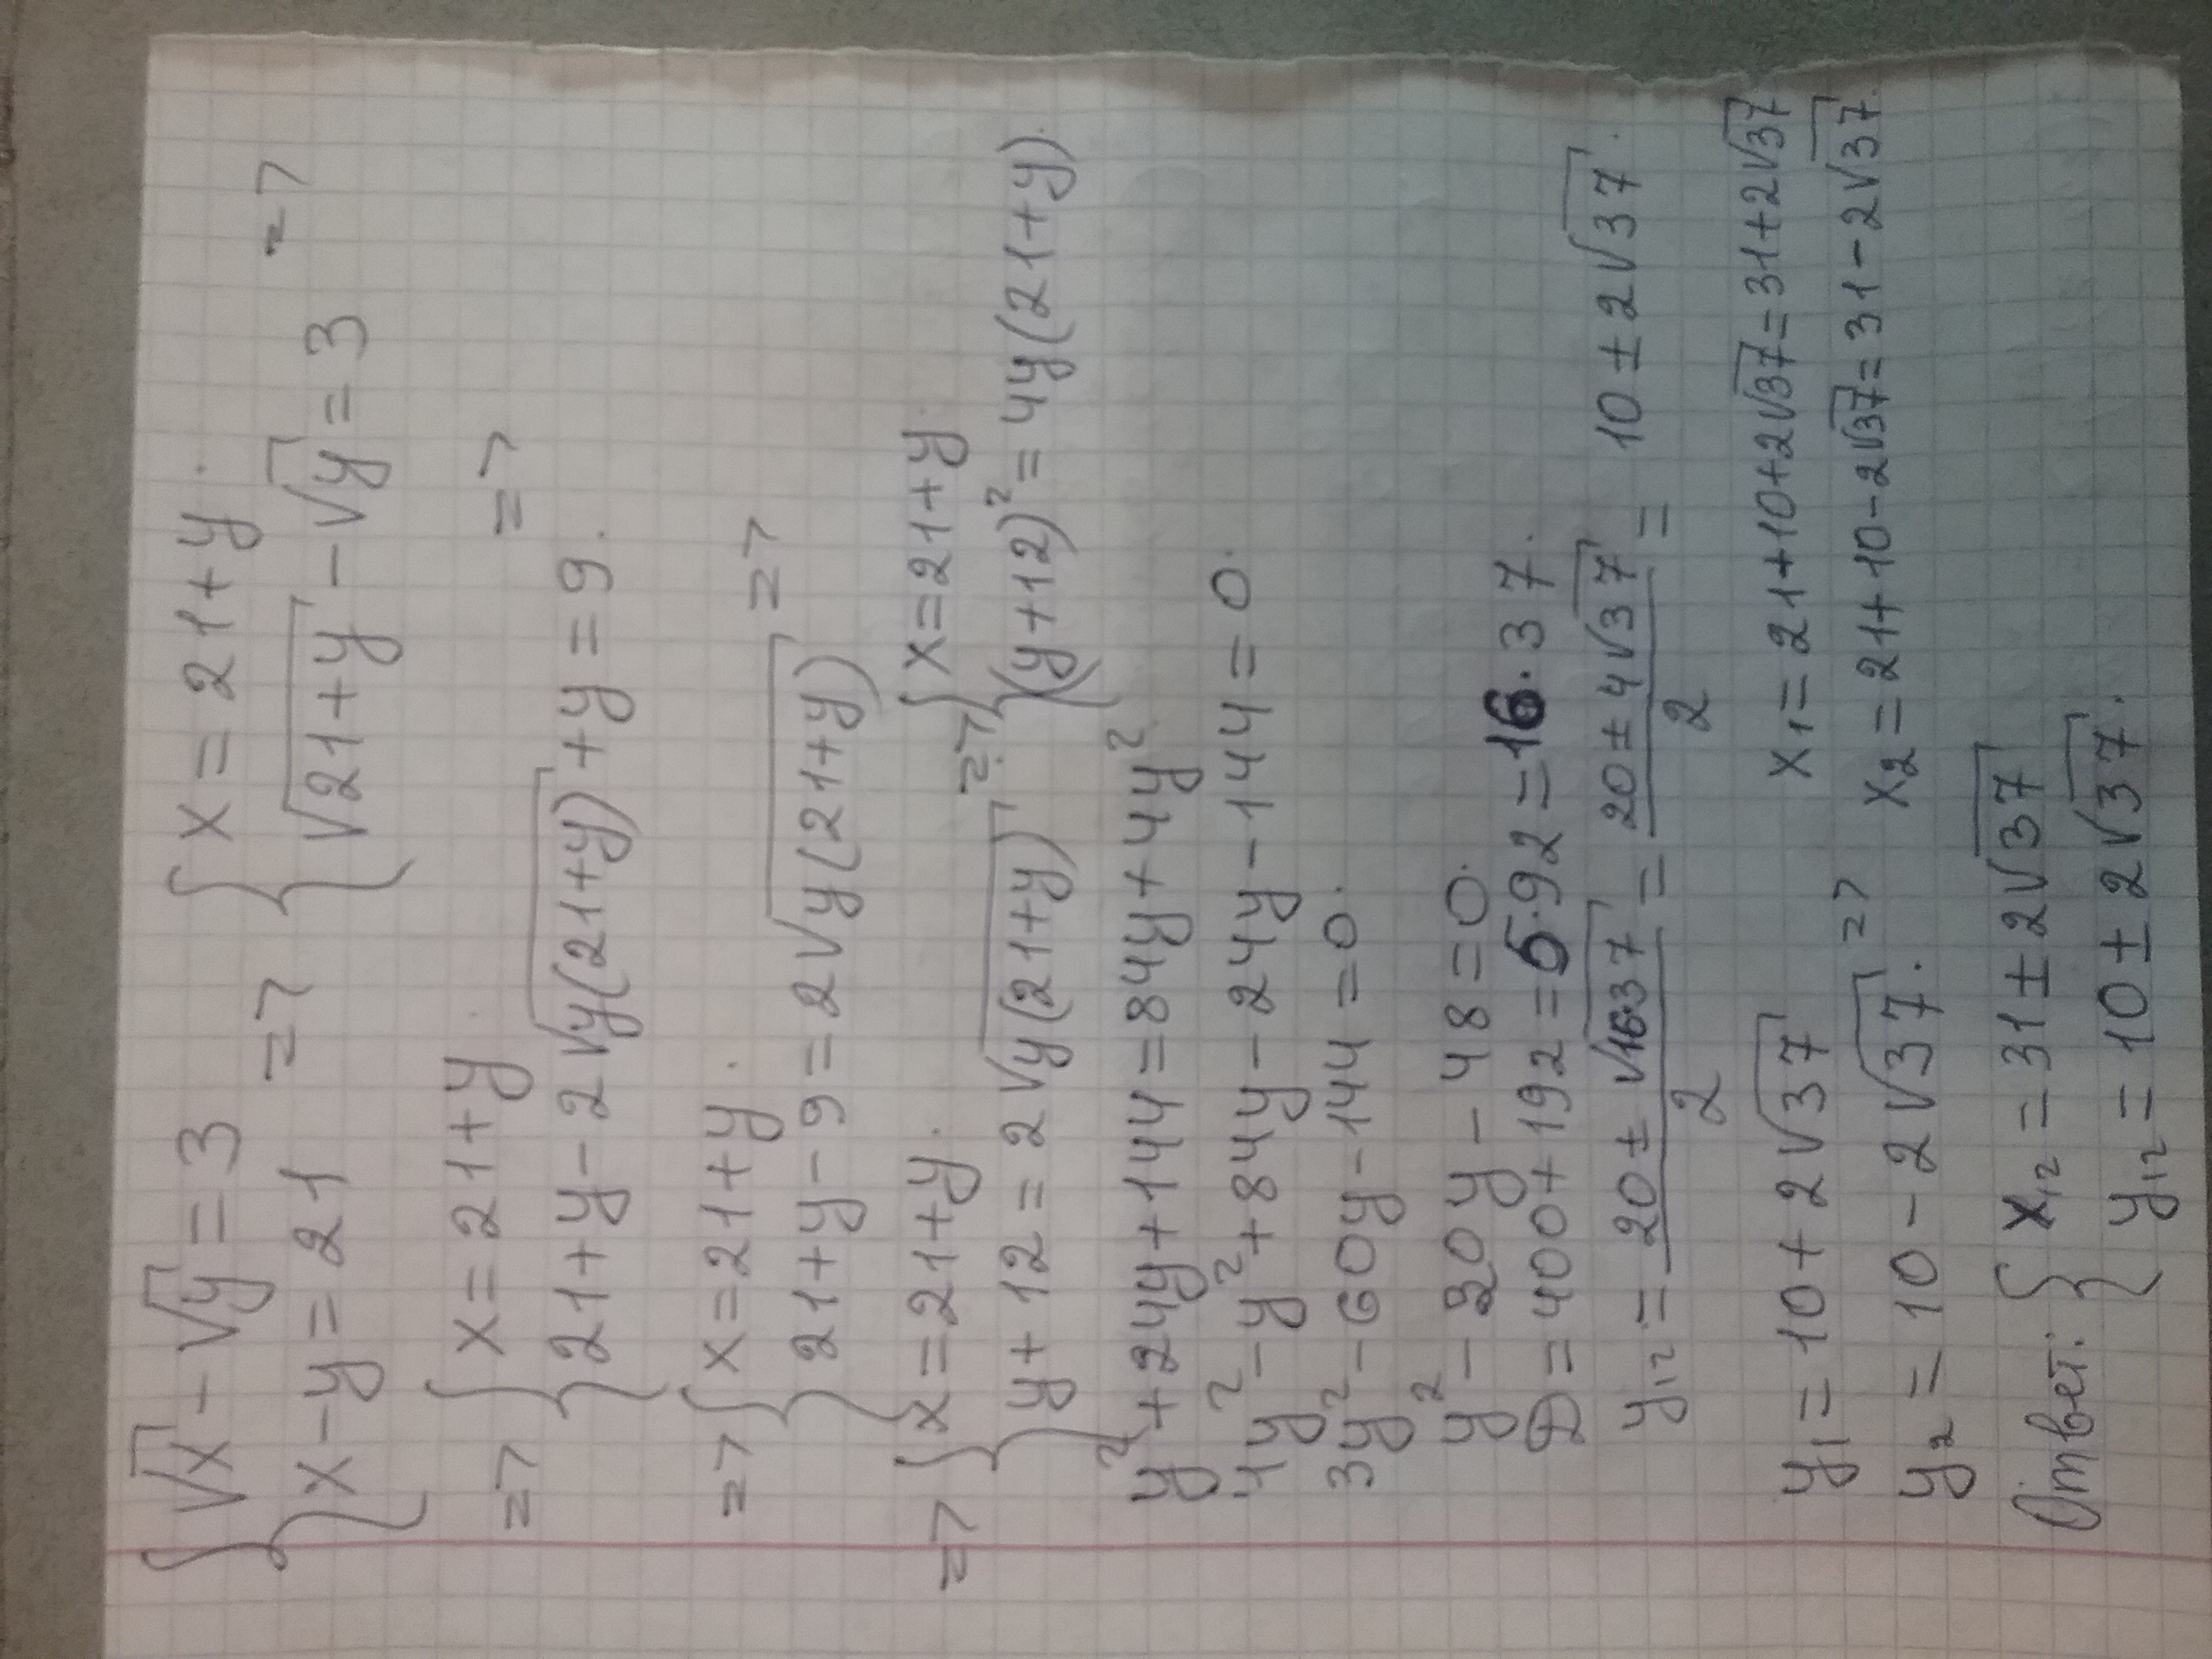 { √x - √y = 3
{ x - y = 21 => { x = 21 + y.
{ √21+y - √y = 3 =>
=> { x = 21 + y.
{ 21 + y - 2√y(21+y) + y = 9. =>
=> { x = 21 + y.
{ 21 + y - 9 = 2√y(21+y) =>
=> { x = 21 + y.
{ y + 12 = 2√y(21+y) => { x = 21 + y.
{ (y+12)² = 4y(21+y).
y² + 24y + 144 = 84y + 4y²
4y² - y² + 84y - 24y - 144 = 0.
3y² - 60y - 144 = 0.
y² - 20y - 48 = 0.
D = 400 + 192 = 592 = 16·37.
y₁₂ = 20 ± √16·37 / 2 = 20 ± 4√37 / 2 = 10 ± 2√37.
y₁ = 10 + 2√37
y₂ = 10 - 2√37. =>
x₁ = 21 + 10 + 2√37 = 31 + 2√37
x₂ = 21 + 10 - 2√37 = 31 - 2√37.
Ответ: { x₁₂ = 31 ± 2√37
{ y₁₂ = 10 ± 2√37.